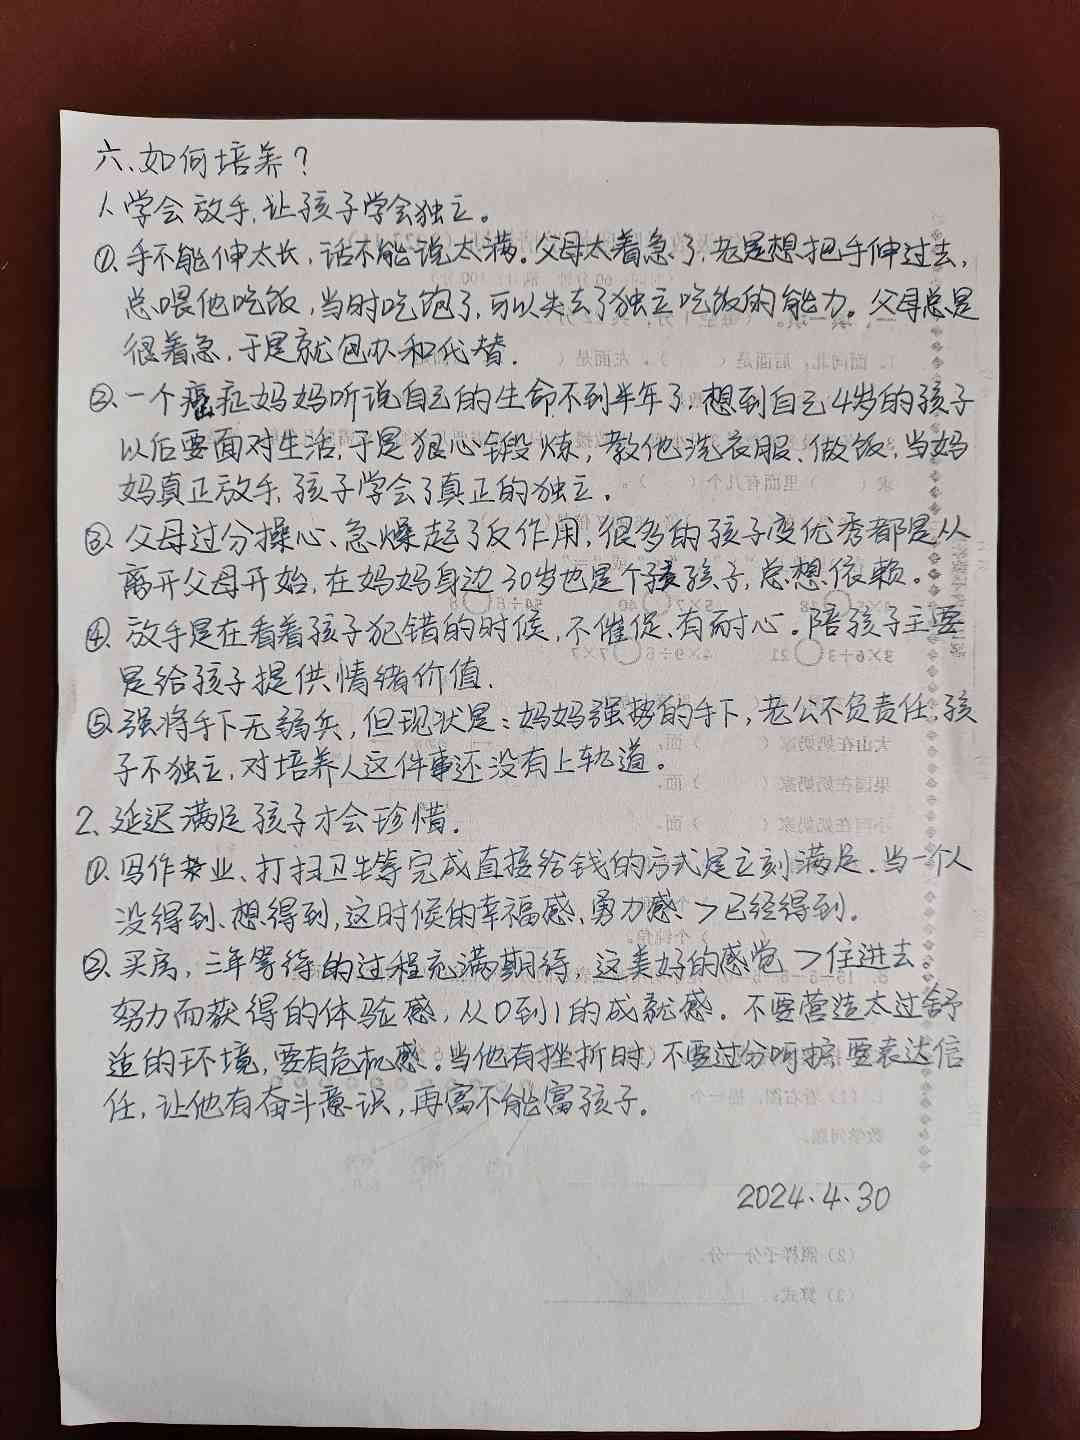 六、如何培养？
1、学会放手，让孩子学会独立。
①、手不能伸太长，话不能说太满。父母太着急了，老是想把手伸过去，
总喂他吃饭，当时吃饱了，可以失去了独立吃饭的能力。父母总是
很着急，于是就包办和代替.
②、一个癌症妈妈听说自己的生命不到半年了，想到自己4岁的孩子
以后要面对生活，于是狠心锻炼，教他洗衣服、做饭，当妈
妈真正放手，孩子学会了真正的独立。
③、父母过分操心、急燥起了反作用，很多的孩子变优秀都是从
离开父母开始，在妈妈身边30岁也是个孩子，总想依赖。
④、放手是在看着孩子犯错的时候，不催促、有耐心。陪孩子主要
是给孩子提供情绪价值.
⑤、强将手下无弱兵，但现状是：妈妈强势的手下，老公不负责任，孩
子不独立，对培养人这件事还没有上轨道。
2、延迟满足孩子才会珍惜.
①、写作业、打扫卫生等完成直接给钱的方式是立刻满足.当一个人
没得到、想得到，这时候的幸福感、勇力感＞已经得到.
②、买房，三年等待的过程充满期待，这美好的感觉＞住进去
努力而获得的体验感，从0到1的成就感.不要营造太过舒
适的环境，要有危机感。当他有挫折时，不要过分呵护，要表达信
任，让他有奋斗意识，再富不能富孩子.
2024.4.30
3×6+3○21
4×9÷6○7×7
大山在奶奶家（ ）面，
果园在奶奶家（ ）面，
数学问题。
（2）照样子分一分。
（3）算式：